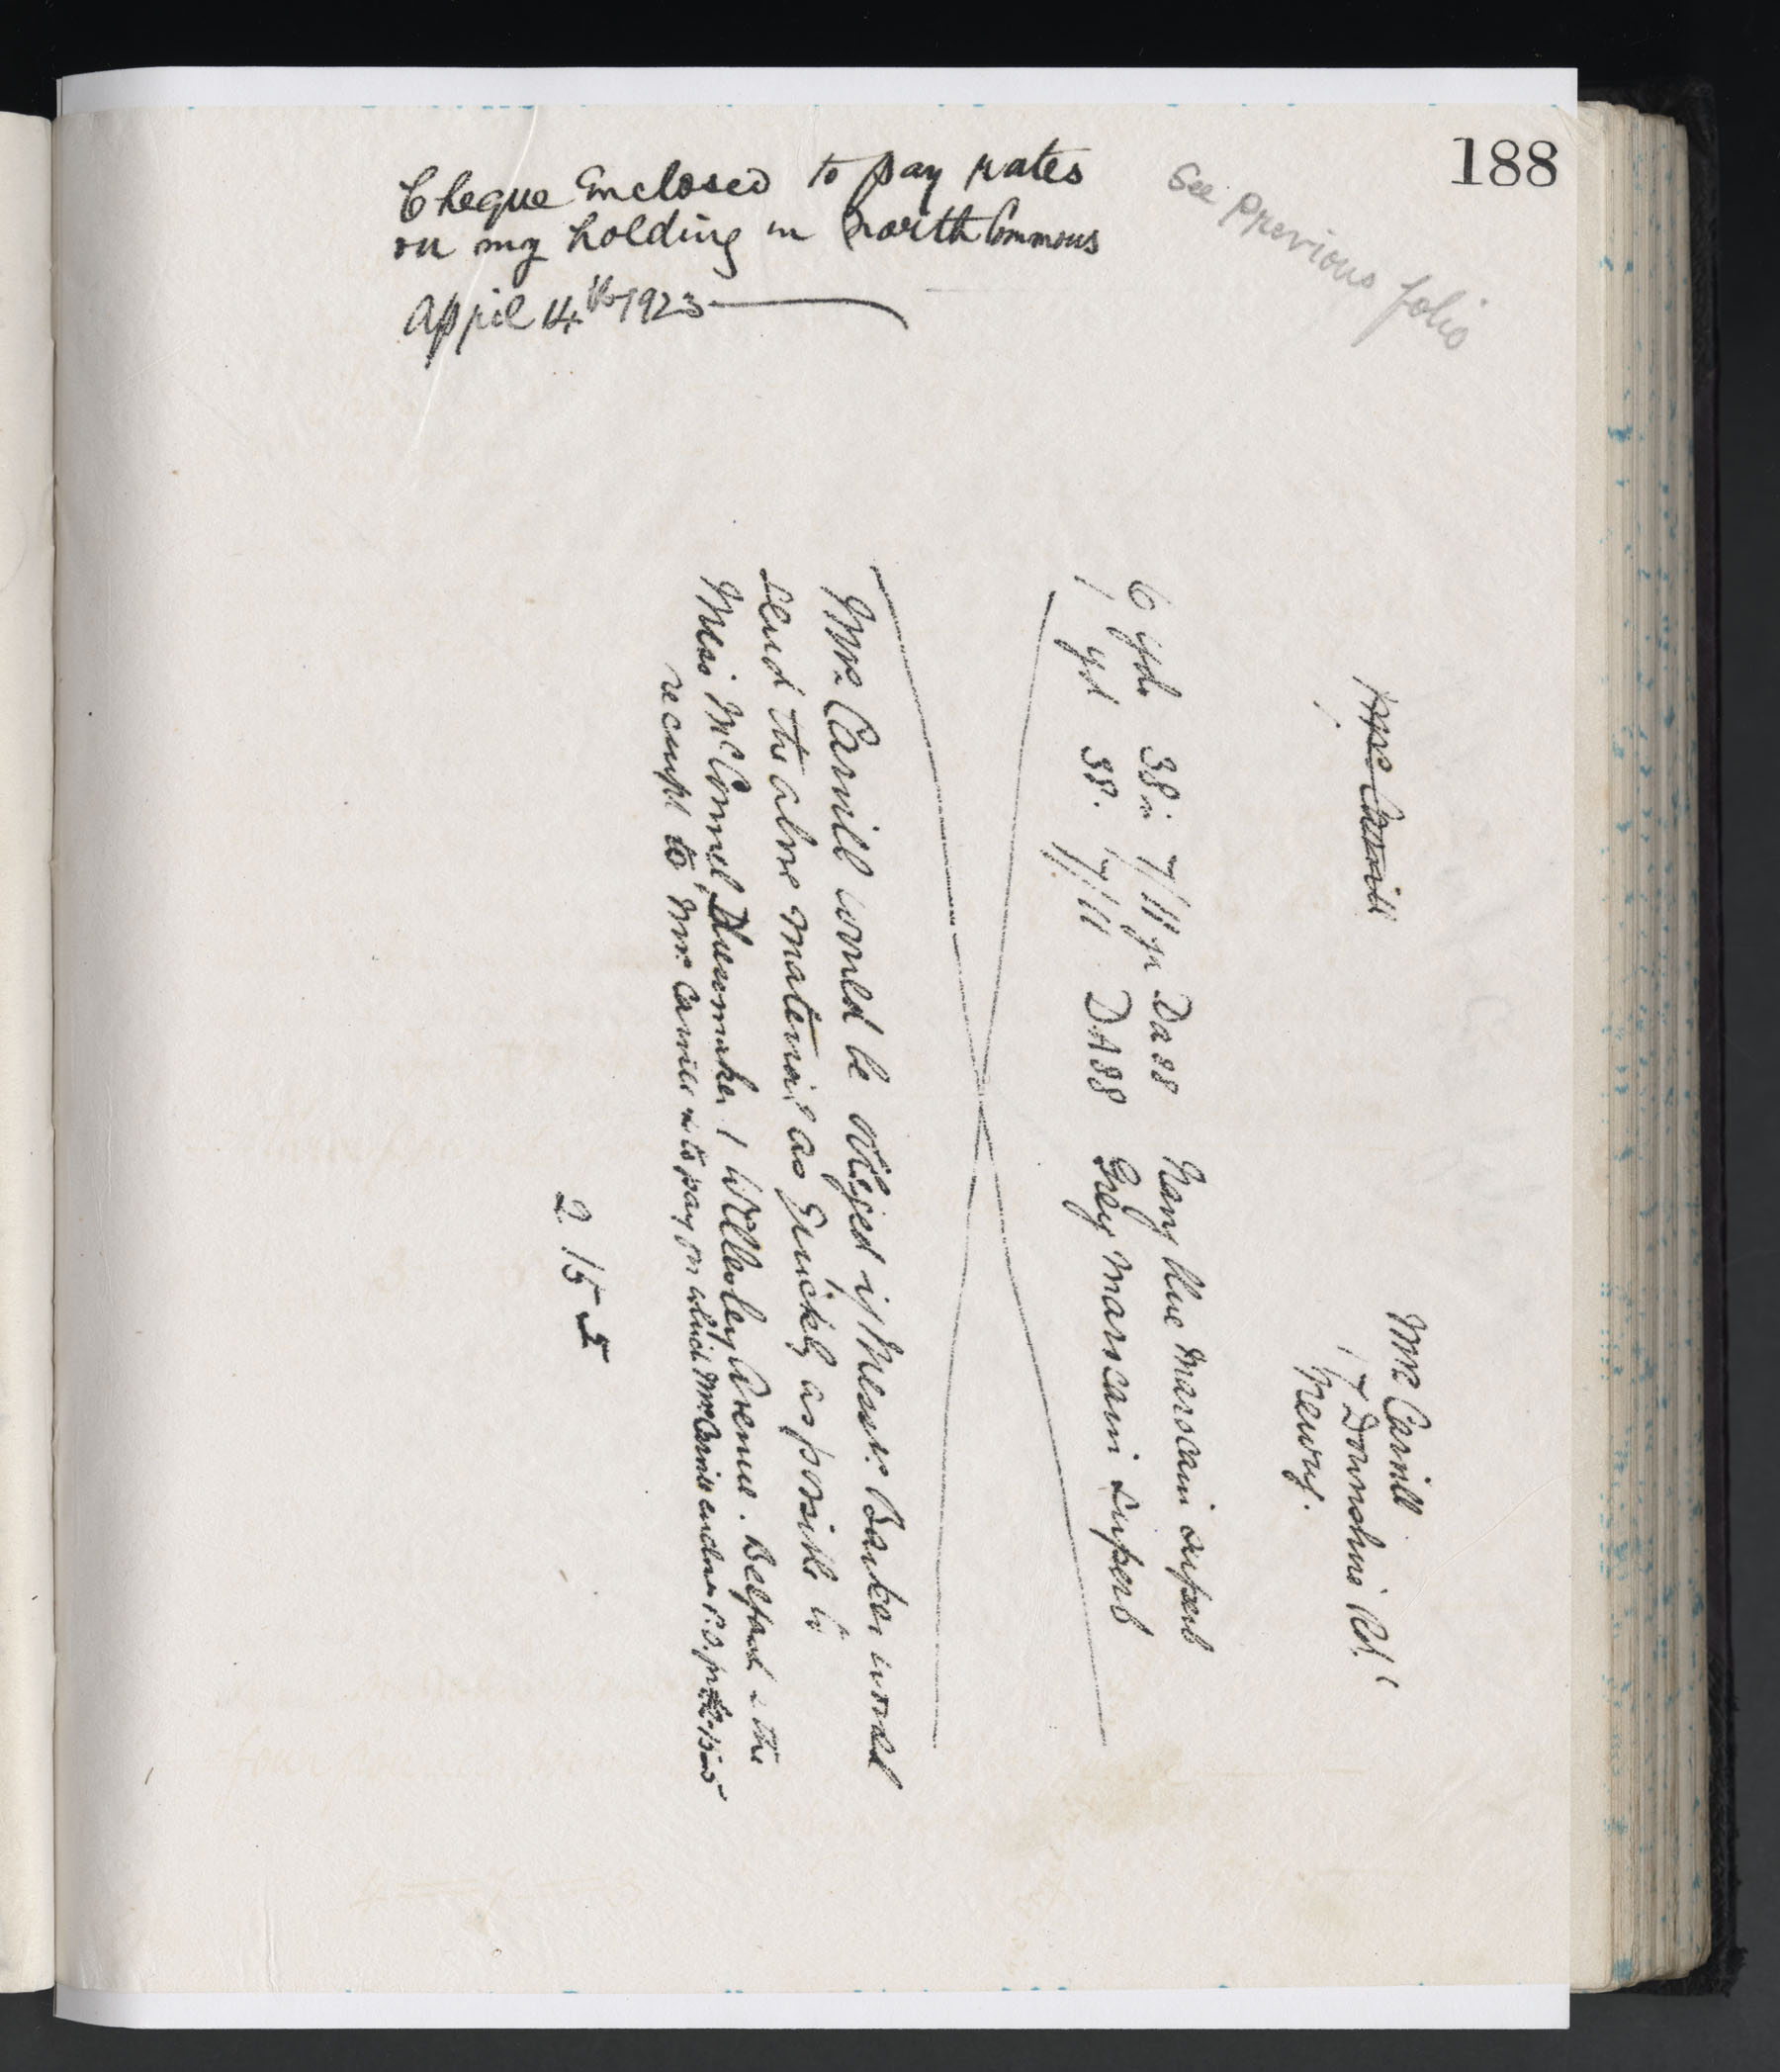 188
Cheque Enclosed to pay rates
on my holding in North Commons
April 14th 1923
See previous folio
Mrs Carvill
17 Downshire Rd.
Newry.
Mrs Carvill
6 yds 38 in 7/11 yd DA 88 Navy blue Marocain superb
1 yd 38. 7/11 DA 88 Grey Marocain superb
Mrs Carvill would be obliged if Messrs Barker would
send the above material as quickly as possible to
Miss McConnel, Dressmaker 1 Wellesley Avenue. Belfast & the
receipt to Mrs Carvill to pay for which Mrs Carvill encloses P.O. for £2-15-5
2 15 5